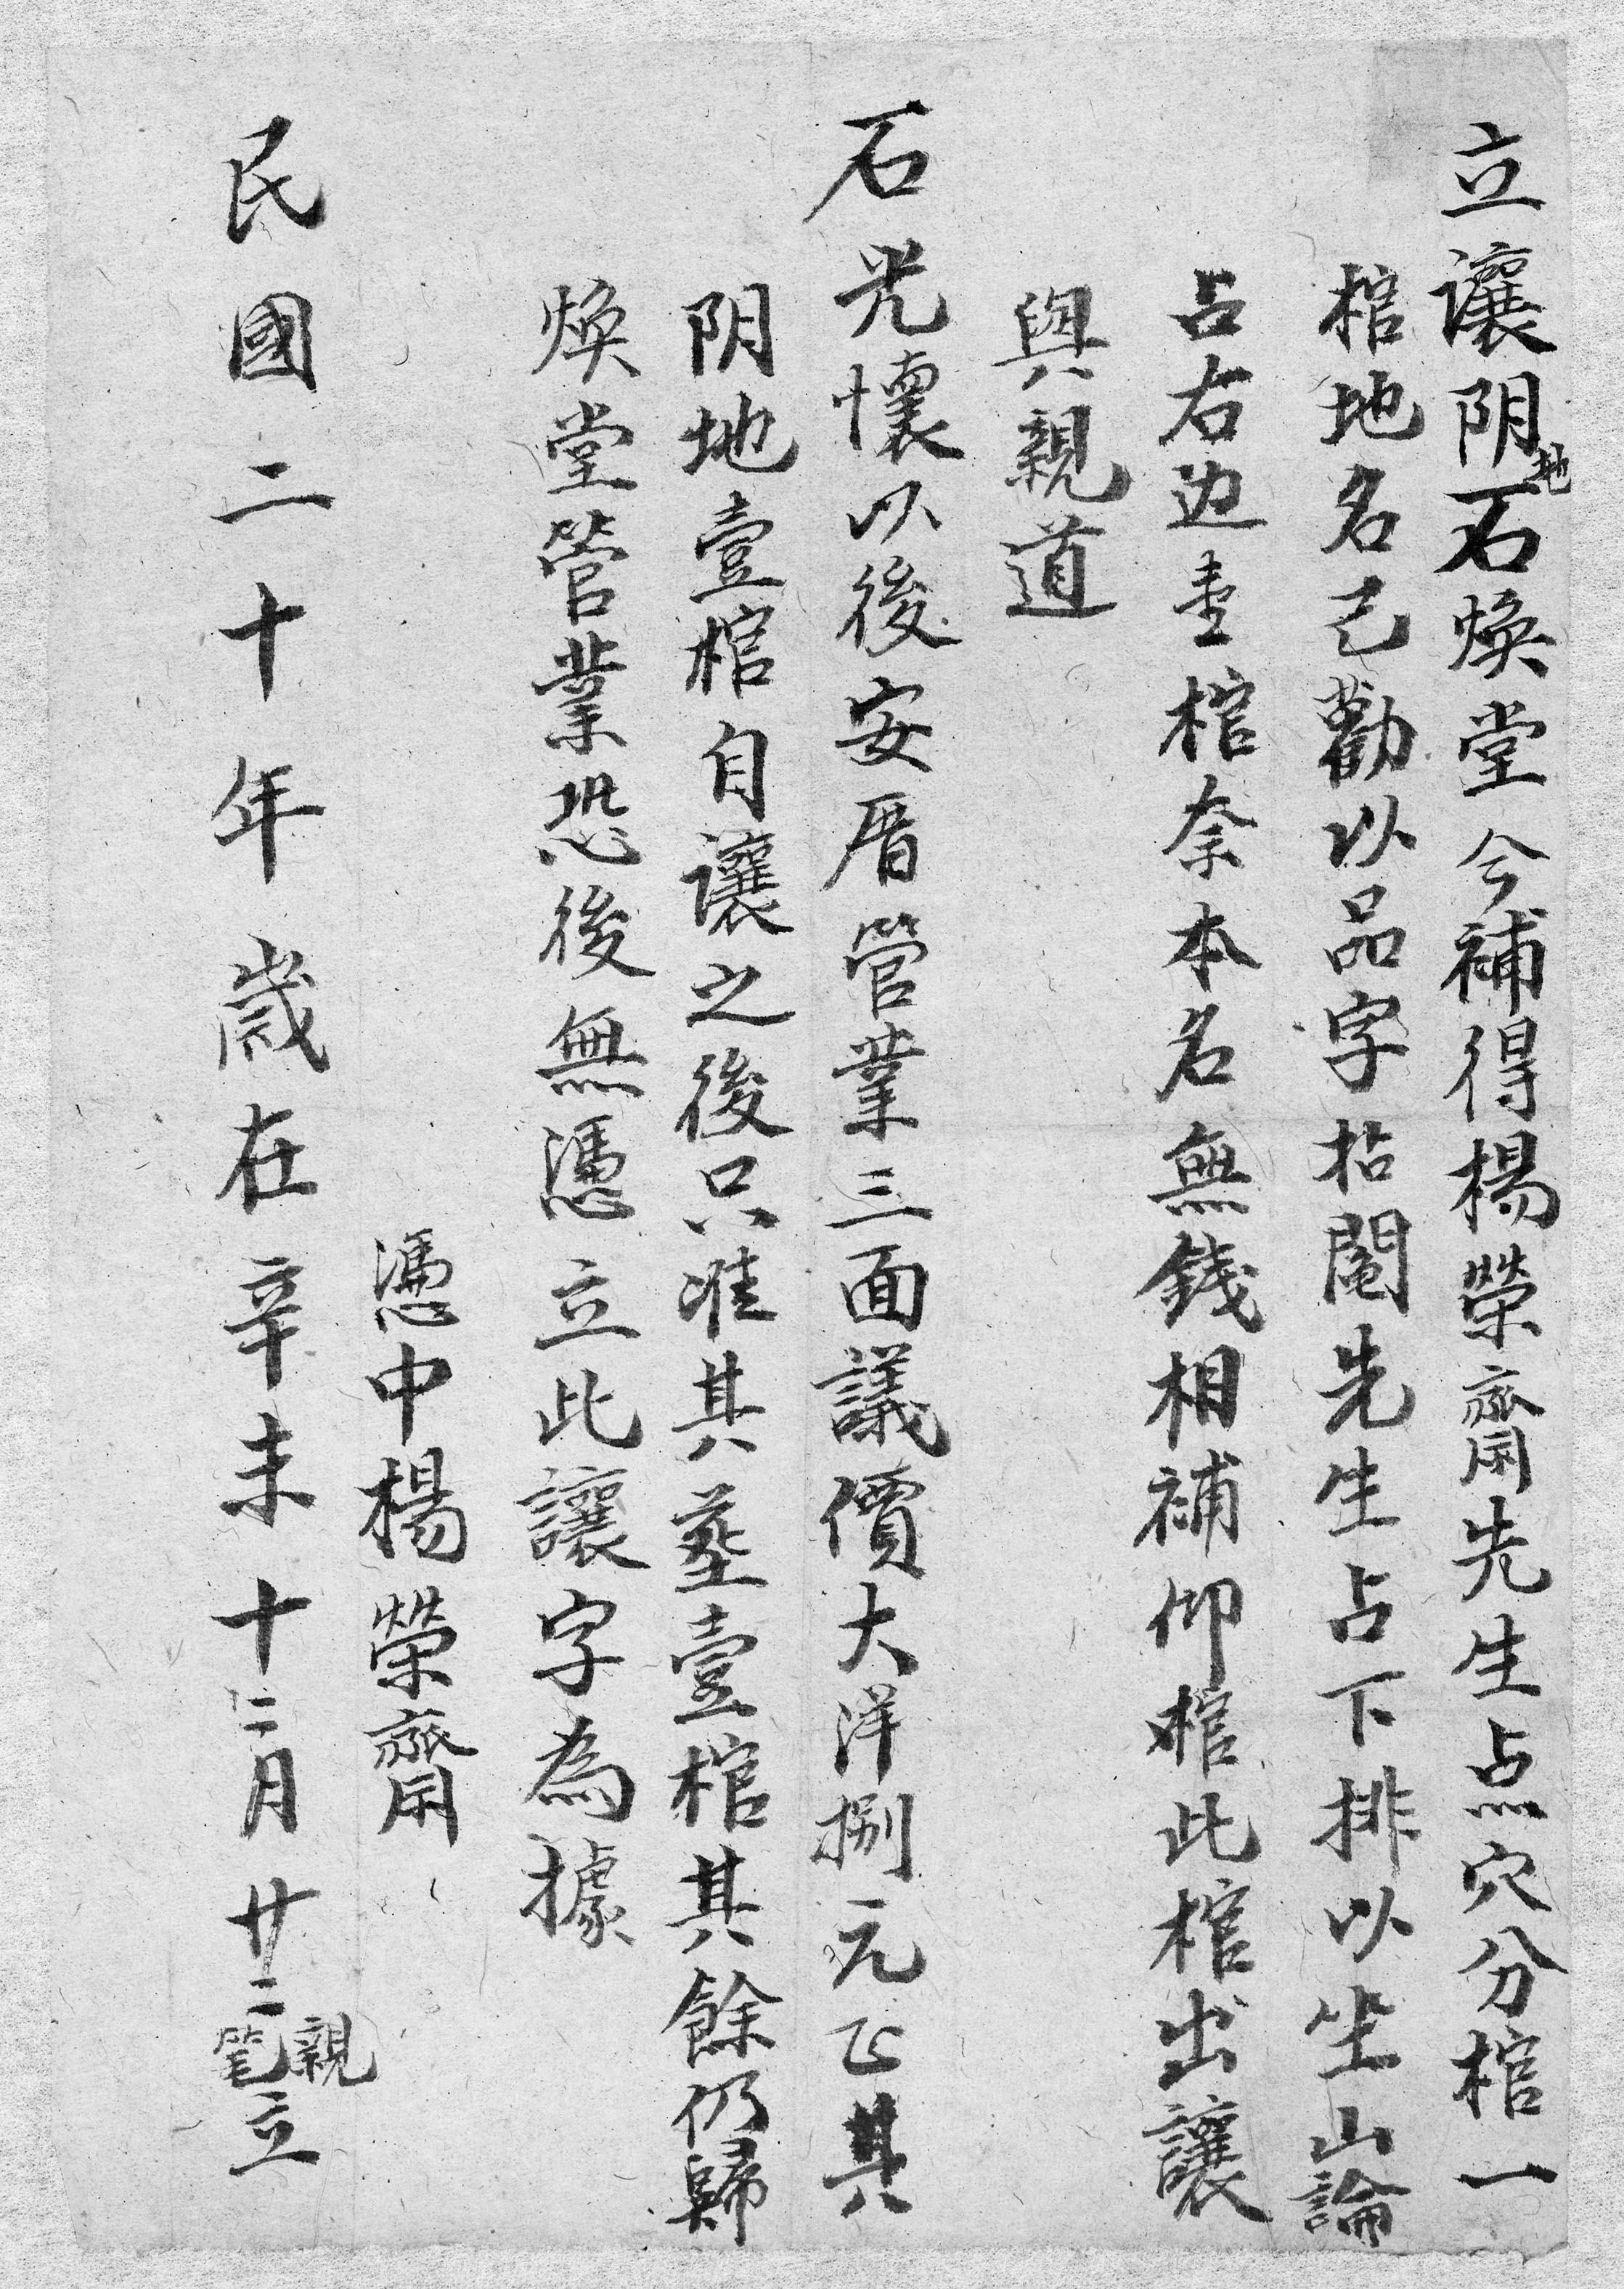 立讓阴地石煥堂今補得楊榮齋先生点穴分棺一
棺地名己勸以品字拈閹先生占下排以坐山論
占右边壹棺奈本名無錢相補仰棺此棺出讓
與親道
石光懷以後安厝管業三面議價大洋捌元正其
阴地壹棺自讓之後只准其塟壹棺其餘仍歸
煥堂管業恐後無憑立此讓字為據
憑中楊榮齋
民國二十年歲在辛未十二月廿二親笔立